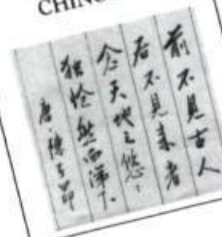 CHINO
前不見古人
后不見来者
念天地之悠々
独怆然而涕下
唐·陳子昂